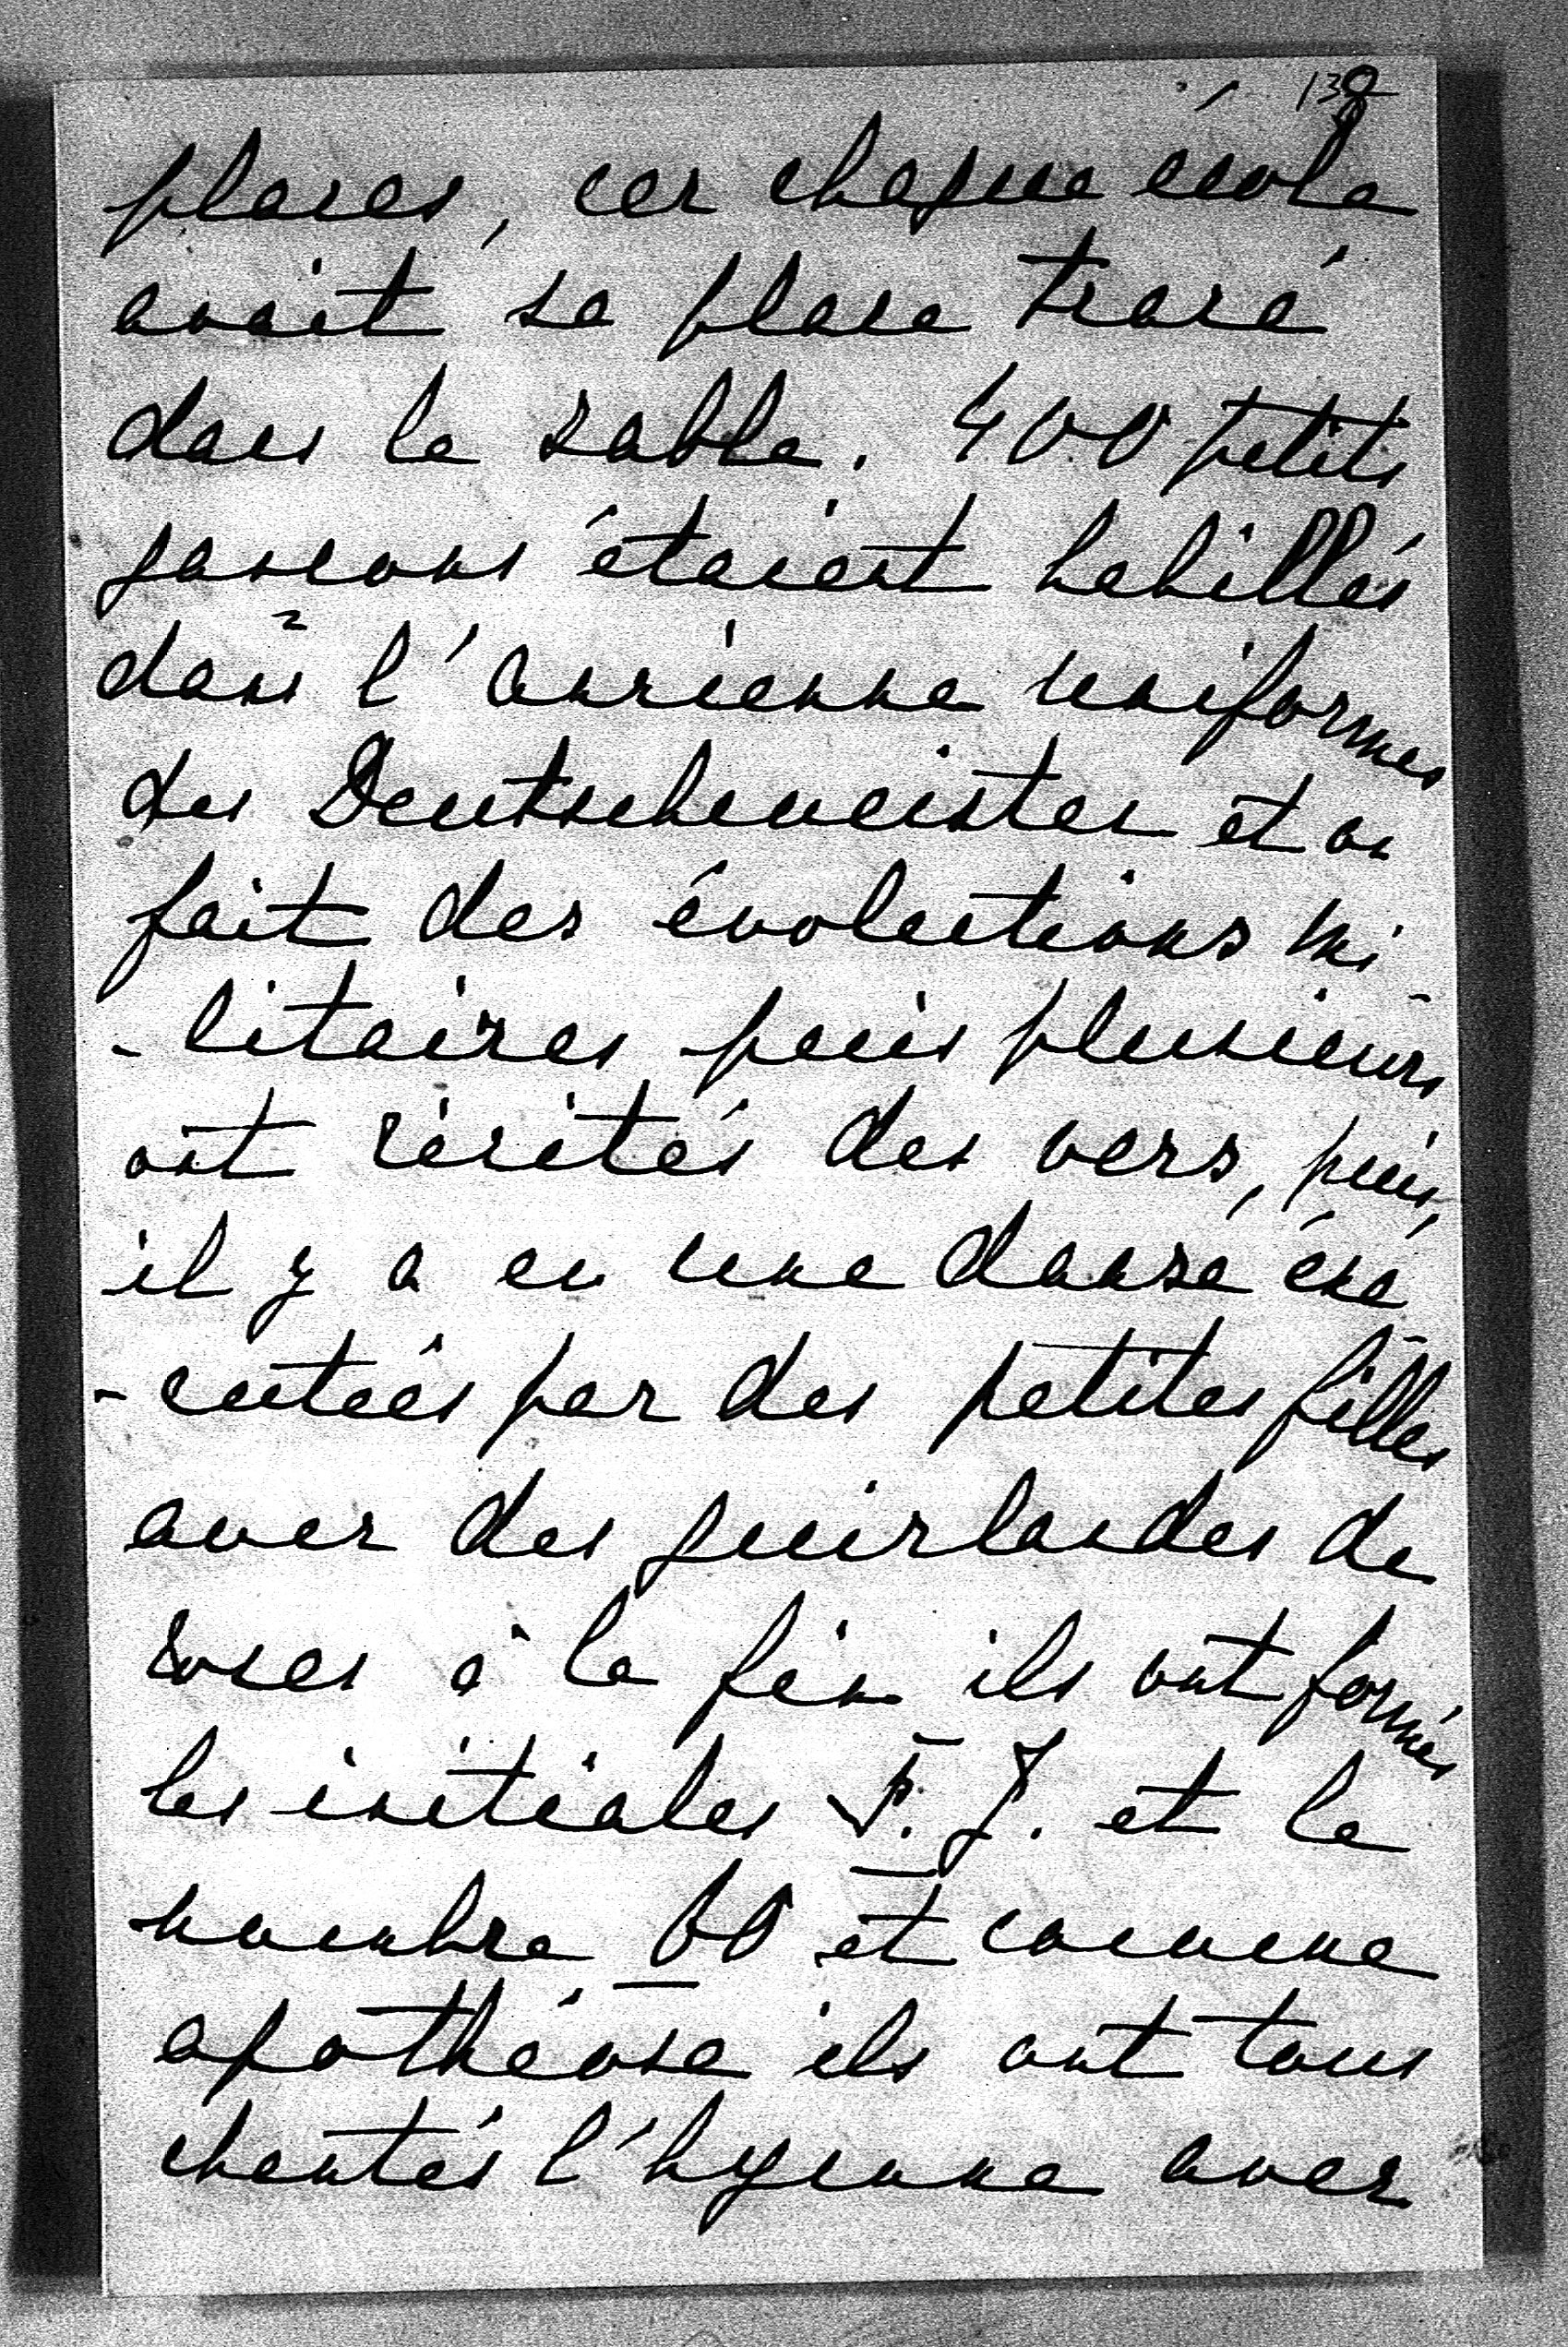 138
places, car chaque école
avait sa place tracé
dans le sable. 400 petits
garcons étaient habillés
dans l'ancienne uniformes
des Deutschmeister et on
fait des évolutions mi
-litaires puis plusieurs
ont récités des vers, puis,
il y a eu une danse éxé-
-cutées par des petites filles
avec des guirlandes de
roses à la fin ils ont formés
les initiales F. J. et le
nombre 60 et comme
apothéose ils ont tous
chantés l'hymne avec